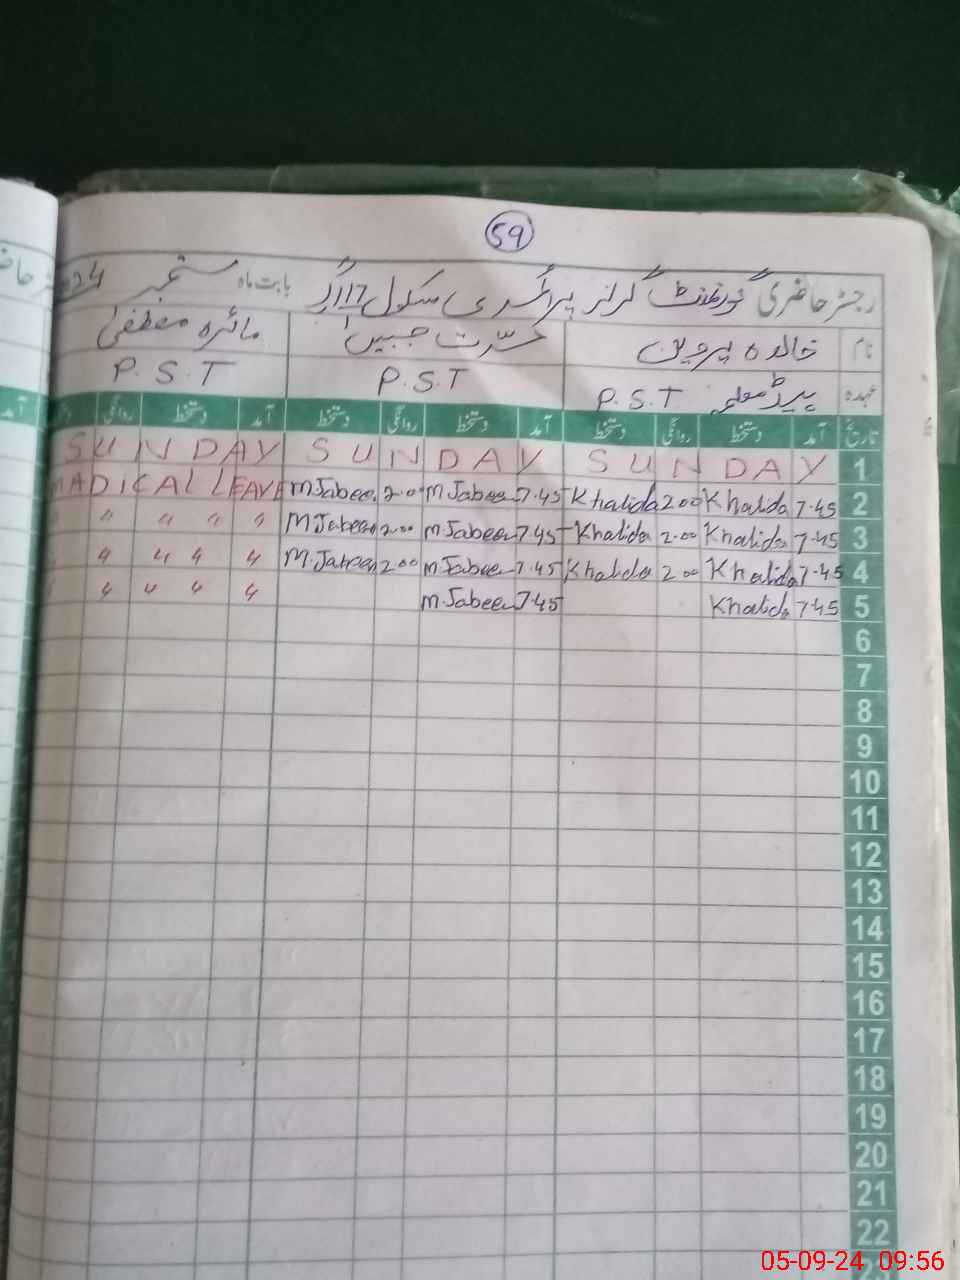 59
رجسٹر حاضری گورنمنٹ گرلز پرائمری سکول 117 بابت ماہ ستمبر
نام خالدہ پروین مسرت جبیں مائرہ مصطفیٰ
عہدہ ہیڈ معلمہ P.S.T P.S.T P.S.T
تاریخ آمد دستخط روانگی دستخط آمد دستخط روانگی دستخط آمد دستخط روانگی
1 SUNDAY SUNDAY SUNDAY
2 7.45 Khalida 2.00 Khalida 7.45 M.Jabeen 2.00 M.Jabeen MADICAL LEAVE
3 7.45 Khalida 2.00 Khalida 7.45 M.Jabeen 2.00 M.Jabeen " " " "
4 7.45 Khalida 2.00 Khalida 7.45 M.Jabeen 2.00 M.Jabeen " " " "
5 7.45 Khalida 7.45 M.Jabeen " " " "
6
7
8
9
10
11
12
13
14
15
16
17
18
19
20
21
22
05-09-24 09:56